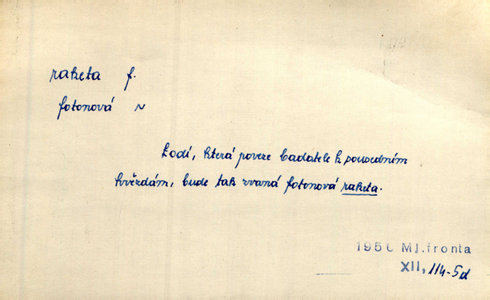 raketa f.
fotonová ~
Lodí, která poveze badatele k sousedním
hvězdám, bude tak zvaná fotonová raketa.
1956 Ml. fronta
XII, 114-5d